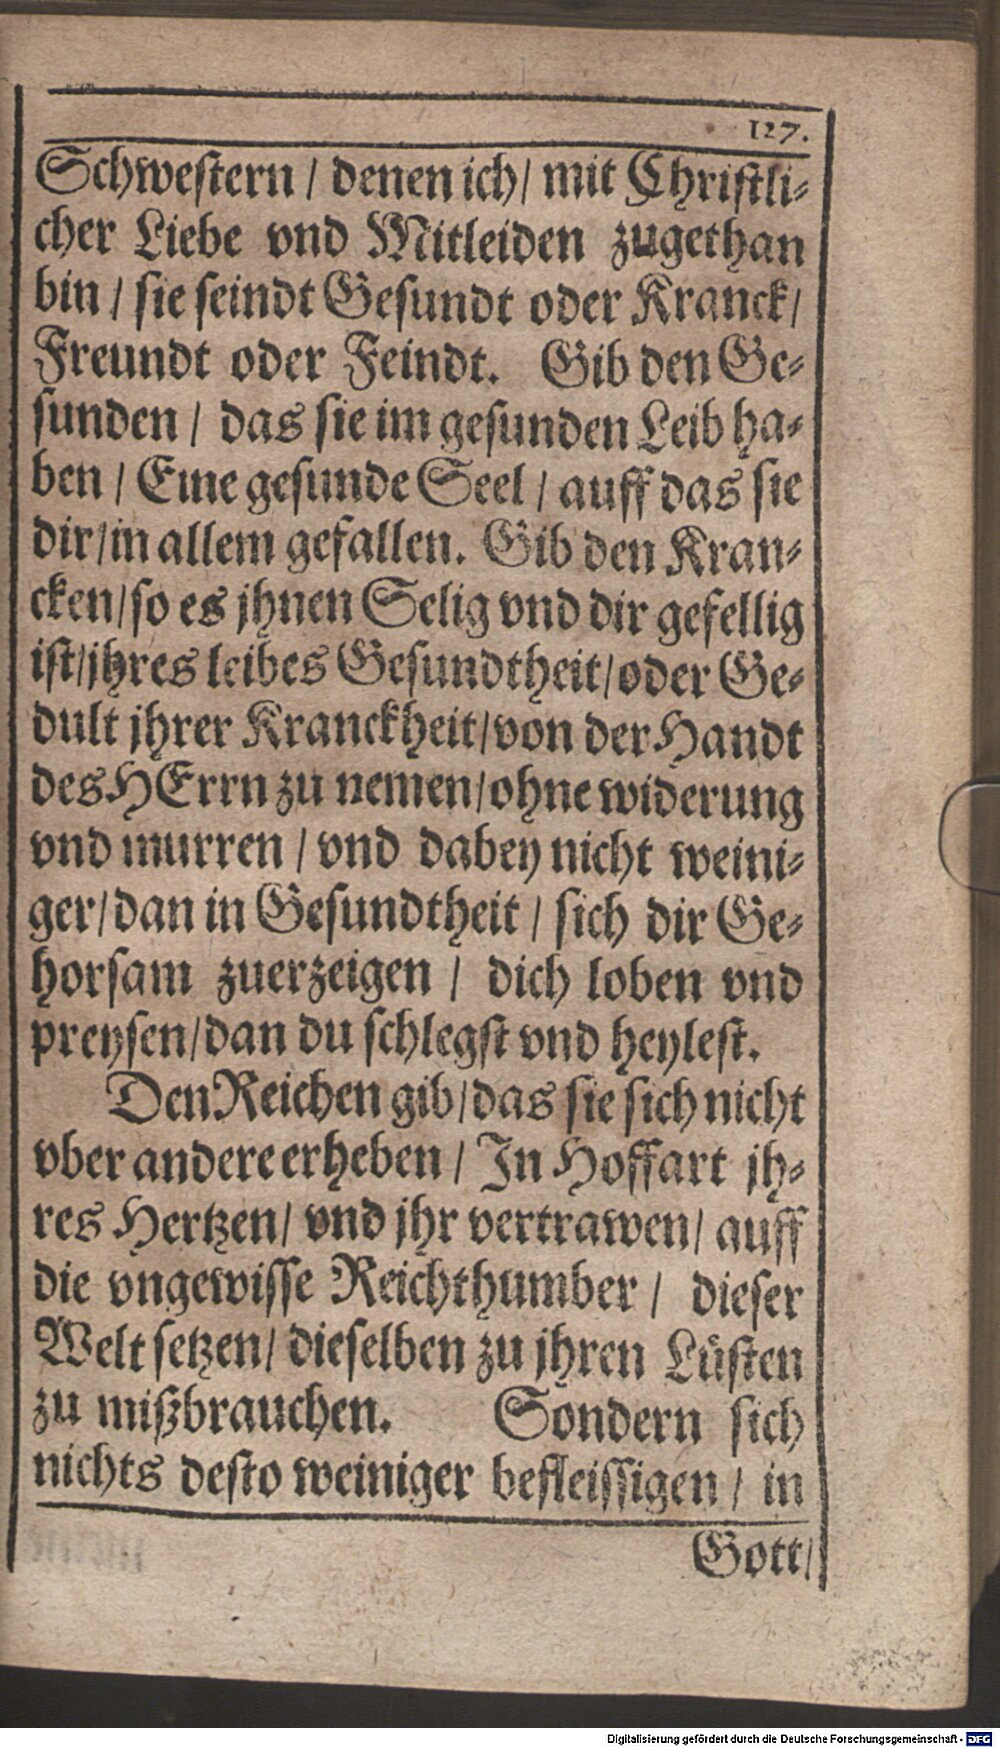 127.
Schwestern / denen ich / mit Christli-
cher Liebe vnd Mitleiden zugethan
bin / sie seindt Gesundt oder Kranck /
Freundt oder Feindt. Gib den Ge-
sunden / das sie im gesunden Leib ha-
ben / Eine gesunde Seel / auff das sie
dir / in allem gefallen. Gib den Kran-
cken / so es jhnen Selig vnd dir gefellig
ist / jhres leibes Gesundtheit / oder Ge-
dult jhrer Kranckheit / von der Handt
des HErrn zu nemen / ohne widerung
vnd murren / vnd dabey nicht weini-
ger / dan in Gesundtheit / sich dir Ge-
horsam zuerzeigen / dich loben vnd
preysen / dan du schlegst vnd heylest.
Den Reichen gib / das sie sich nicht
vber andere erheben / In Hoffart jh-
res Hertzen / vnd jhr vertrawen / auff
die vngewisse Reichthumber / dieser
Welt setzen / dieselben zu jhren Lüsten
zu mißbrauchen. Sondern sich
nichts desto weiniger befleissigen / in
Gott /
Digitalisierung gefördert durch die Deutsche Forschungsgemeinschaft - DFG